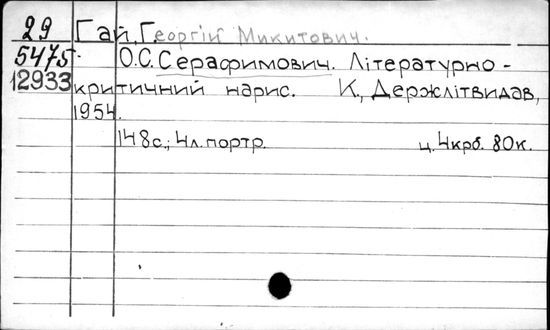 29 Гай, Георгій Микитович.
5475 О.С. Серафимович. Літературно-
12933 критичний нарис. К., Держлітвидав,
1954.
148с.; 4л. портр. ц. 4крб. 80к.